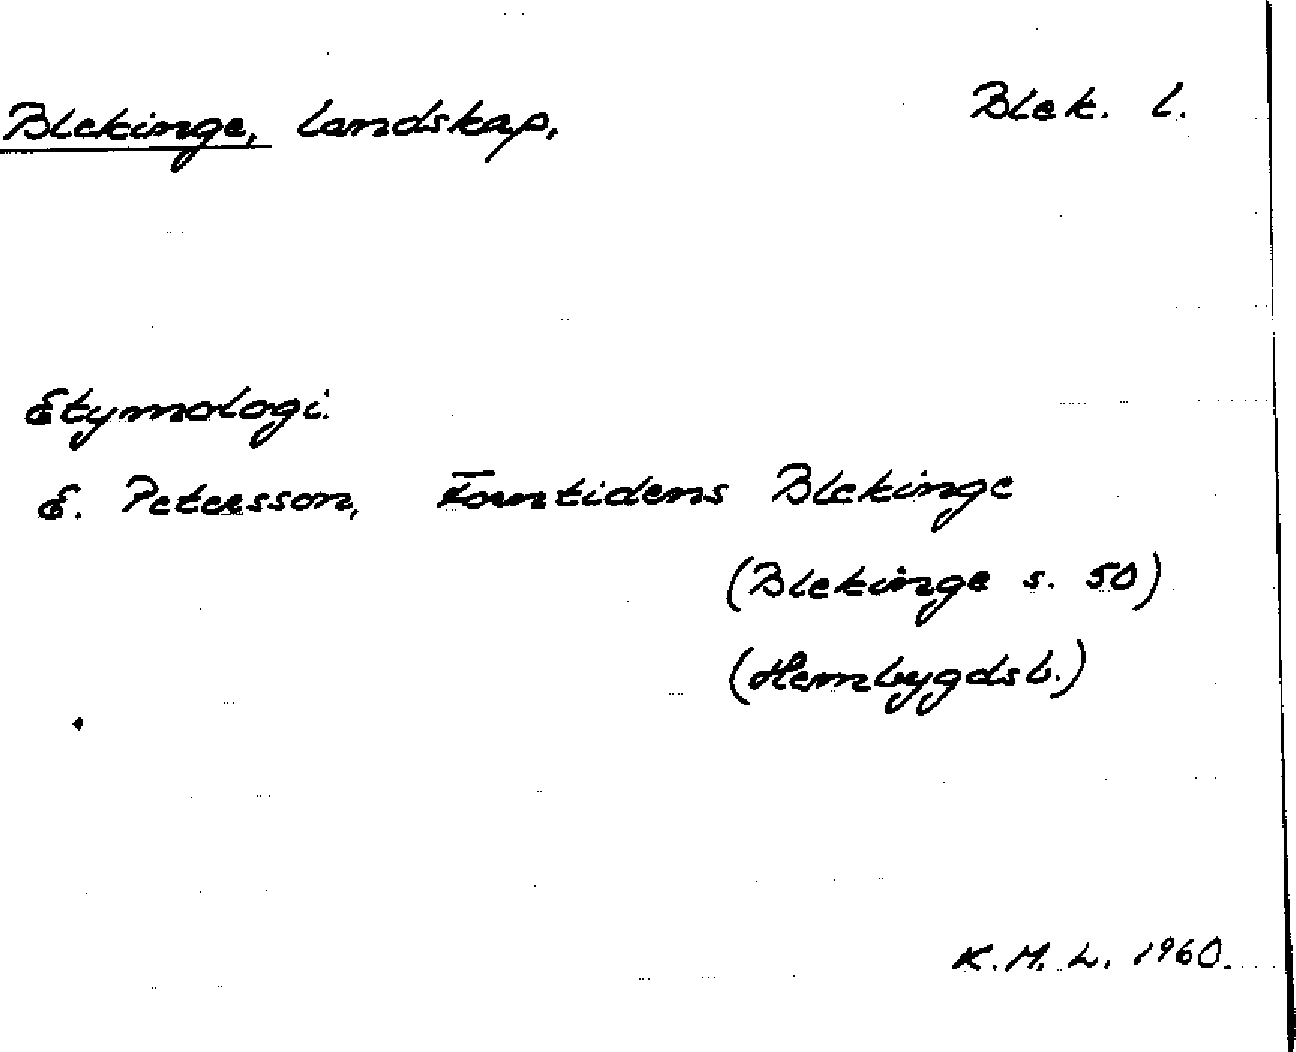 Blekinge, landskap,
Blek. l.
Etymologi.
E. Petersson, Forntidens Blekinge
(Blekinge s. 50)
(Hembygdsb.)
K.M.L. 1960.